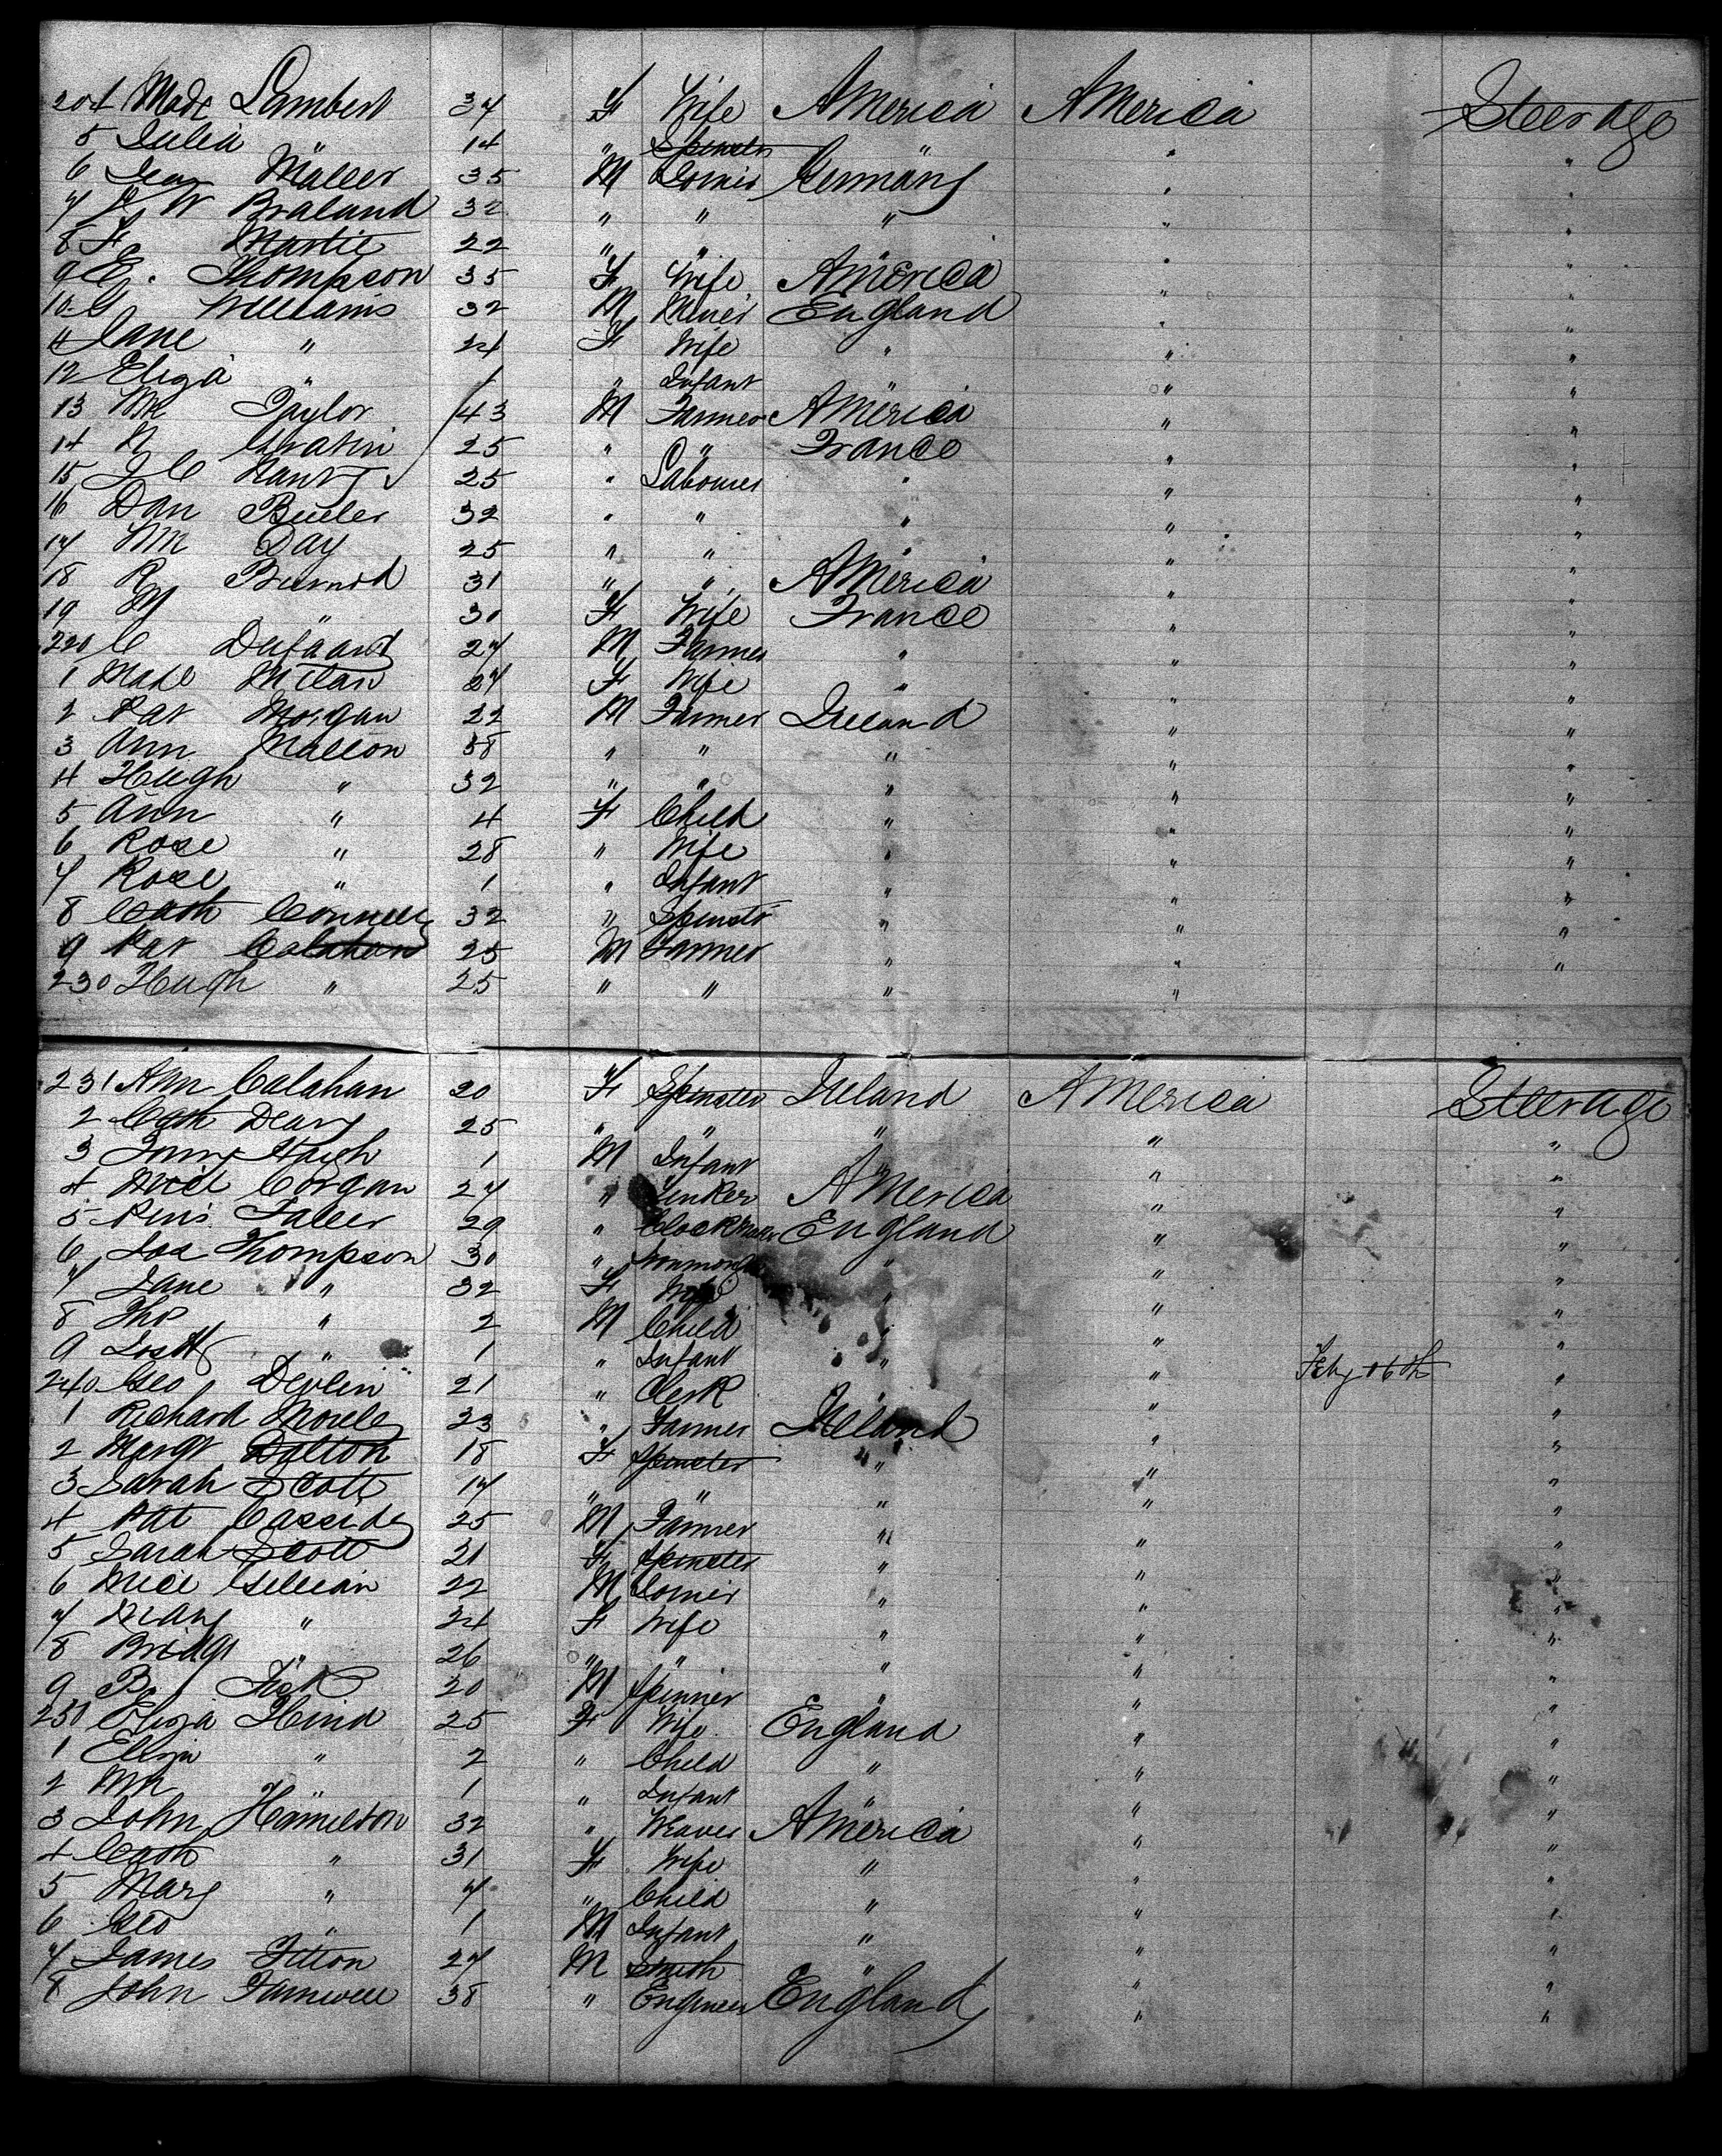 204 Made Lambert 34 F Wife America America Steerage
5 Julia " 14 " Spinster " " "
6 Müller 35 M Joiner Germany " "
7 W Braland 32 " " " " "
8 F 22 " " " "
9 E. Thompson 35 F Wife America " "
10 G Williams 32 M Miner England " "
11 Jane " 24 F Wife " " "
12 Eliza " 1 " Infant " "
13 Wm Taylor 43 M Farmer America " "
14 N 25 " " France " "
15 J C 25 " Labourer " " "
16 Dan Butler 32 " " " " "
17 Wm Day 25 " " " " "
18 R 31 " " America " "
19 M " 30 F Wife France " "
220 C 27 M Farmer " " "
1 Made 27 F Wife " " "
2 Pat Morgan 22 M Farmer Ireland " "
3 Ann Mallon 38 " " " " "
4 Hugh " 32 " " " " "
5 Ann " 4 F Child " " "
6 Rose " 28 " Wife " " "
7 Rose " 1 " Infant " " "
8 Cath 32 " Spinstr " " "
9 Pat Calahan 25 M Farmer " " "
230 Hugh " 25 " " " "
231 Ann Calahan 20 F Spinster Ireland America Steerage
2 Cath Deary 25 " " " " "
3 Hugh 1 M Infant " " "
4 Mich Corgan 27 " America " "
5 Fuller 29 " Clockmaker England " "
6 Jos Thompson 30 " " " "
7 Jane " 32 F Wife " " "
8 Tho " 2 M Child " " "
9 " 1 " Infant " " "
240 Geo Devlin 21 " Clerk " " Feby 16th "
1 Richard 23 " Farmer Ireland " "
2 Margt Dalton 18 F Spinster " " "
3 Sarah Scott 17 " " " " "
4 Patt Cassidy 25 M Farmer " " "
5 Sarah Scott 21 F Spinster " " "
6 Mich Gillian 22 M Joiner " " "
7 Mary " 24 F Wife " " "
8 Bridgt " 26 " " " " "
9 20 M Spinner " " "
250 Eliza Hind 25 F Wife England " "
1 Eliza " 2 " Child " " "
2 Wm " 1 " Infant " " "
3 John Hamilton 32 " Weaver America " "
4 Cath " 31 F Wife " " "
5 Mary " 7 " Child " " "
6 Geo " 1 M Infant " " "
7 James Fitton 27 M Smith " " "
8 John Farnwell 38 " Engineer England " "